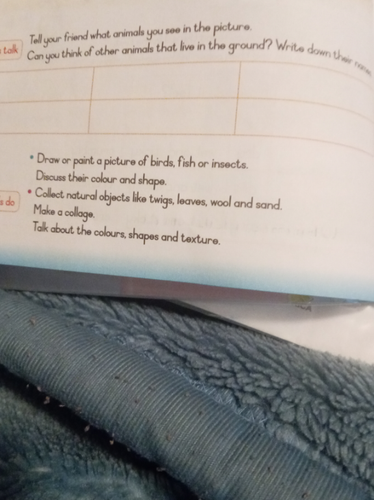 talk
Tell your friend what animals you see in the picture.
Can you think of other animals that live in the ground? Write down their
• Draw or paint a picture of birds, fish or insects.
Discuss their colour and shape.
do
• Collect natural objects like twigs, leaves, wool and sand.
Make a collage.
Talk about the colours, shapes and texture.